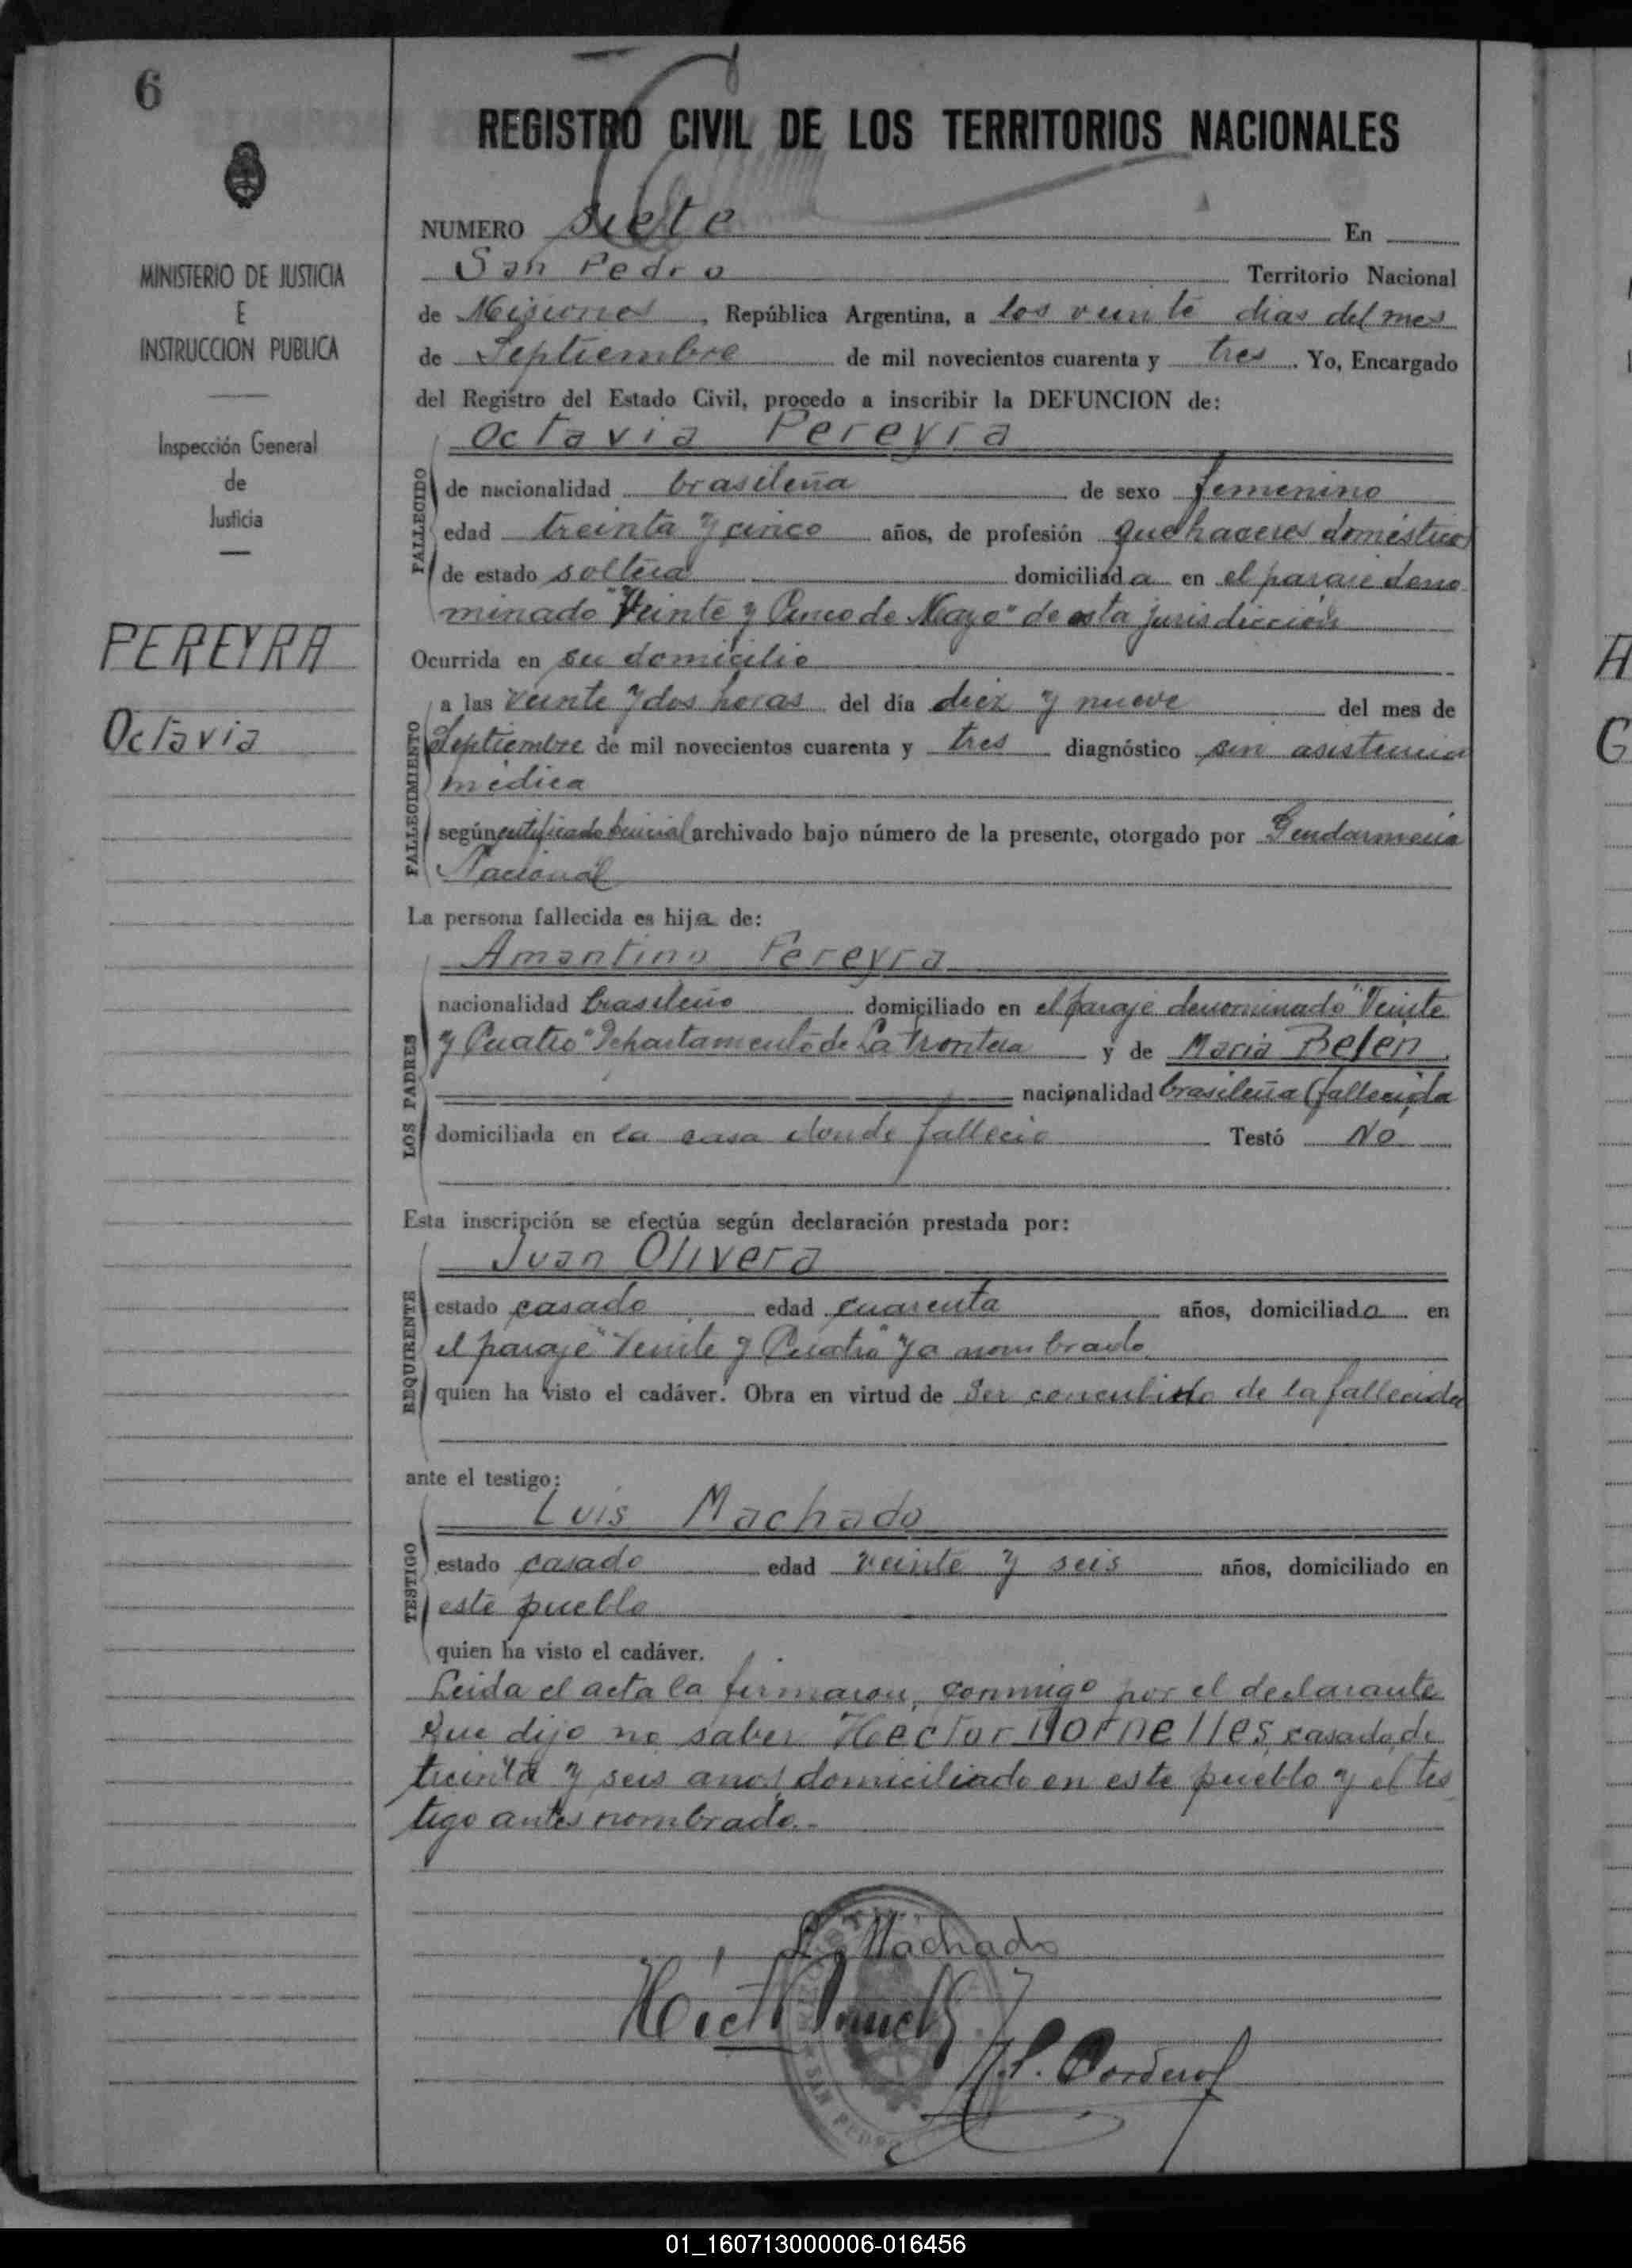 6
MINISTERIO DE JUSTICIA
E
INSTRUCCION PUBLICA
Inspección General
de
Justicia
PEREYRA
Octavia
REGISTRO CIVIL DE LOS TERRITORIOS NACIONALES
NUMERO siete En
San Pedro Territorio Nacional
de Misiones, República Argentina, a los veinte dias del mes
de Septiembre de mil novecientos cuarenta y tres. Yo, Encargado
del Registro del Estado Civil, procedo a inscribir la DEFUNCION de:
Octavia Pereyra
FALLECIDO
de nacionalidad brasileña de sexo femenino
edad treinta y cinco años, de profesión quehaceres domésticos
de estado soltera domiciliada en el paraje deno
minado "Veinte y Cinco de Mayo" de esta jurisdicción
Ocurrida en su domicilio
FALLECIMIENTO
a las veinte y dos horas del día diez y nueve del mes de
Septiembre de mil novecientos cuarenta y tres diagnóstico sin asistencia
médica
según certificado archivado bajo número de la presente, otorgado por Gendarmeria
Nacional
La persona fallecida es hija de:
Amantino Pereyra
LOS PADRES
nacionalidad brasileño domiciliado en el paraje denominado "Veinte
y Cuatro" Departamento de La Frontera y de Maria Belen
nacionalidad brasileña (fallecida
domiciliada en la casa donde fallecio Testó No
Esta inscripción se efectúa según declaración prestada por:
Juan Olivera
REQUIRENTE
estado casado edad cuarenta años, domiciliado en
el paraje "Veinte y Cuatro" ya nombrado
quien ha visto el cadáver. Obra en virtud de ser concubino de la fallecida
ante el testigo:
Luis Machado
TESTIGO
estado casado edad veinte y seis años, domiciliado en
este pueblo
quien ha visto el cadáver.
Leida el acta la firmaron, conmigo por el declarante
que dijo no saber Hector Dornelles, casado, de
treinta y seis anos domiciliado en este pueblo y el tes
tigo antes nombrado.-
L. Machado
SAN PEDRO
01_160713000006-016456